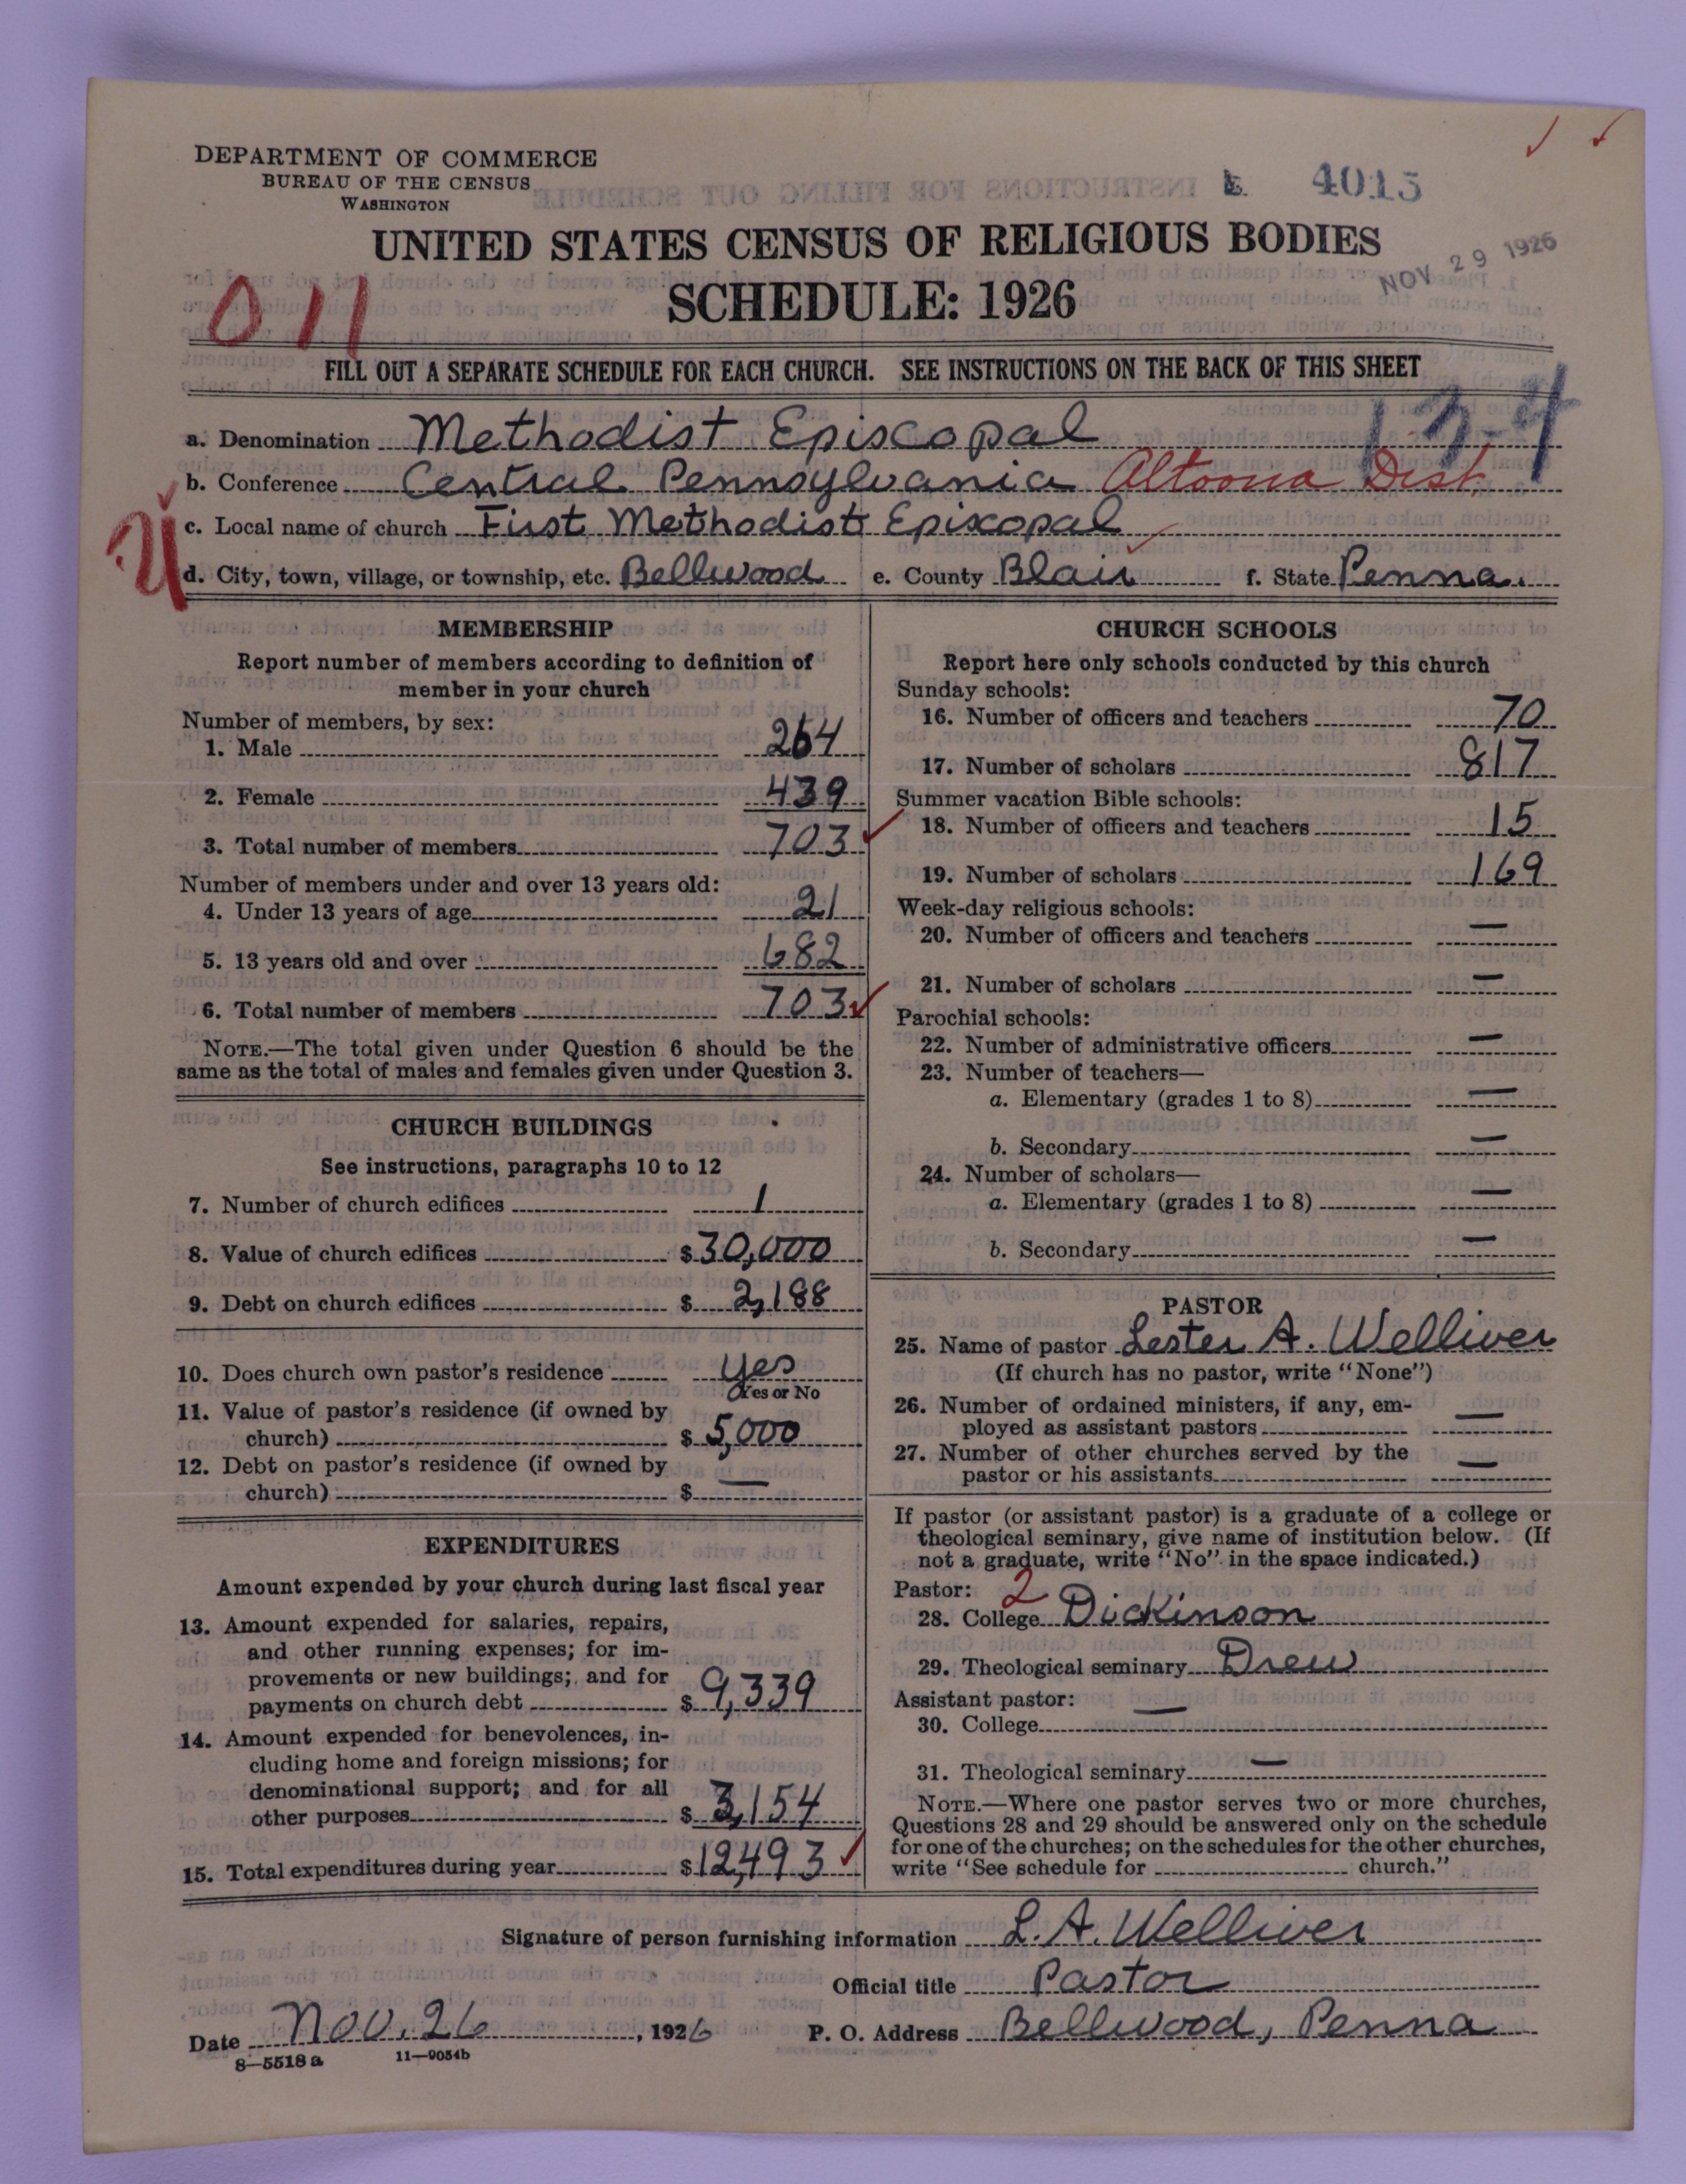 DEPARTMENT OF COMMERCE
BUREAU OF THE CENSUS
WASHINGTON
4015
UNITED STATES CENSUS OF RELIGIOUS BODIES
NOV 29 1926
SCHEDULE: 1926
011
FILL OUT A SEPARATE SCHEDULE FOR EACH CHURCH. SEE INSTRUCTIONS ON THE BACK OF THIS SHEET
13-4
a. Denomination Methodist Episcopal
b. Conference Central Pennsylvania Altoona Dist.
c. Local name of church First Methodist Episcopal
d. City, town, village, or township, etc. Bellwood e. County Blair f. State Penna.
MEMBERSHIP
Report number of members according to definition of
member in your church
Number of members, by sex:
1. Male 264
2. Female 439
3. Total number of members 703
Number of members under and over 13 years old:
4. Under 13 years of age 21
5. 13 years old and over 682
6. Total number of members 703
NOTE.—The total given under Question 6 should be the
same as the total of males and females given under Question 3.
CHURCH BUILDINGS
See instructions, paragraphs 10 to 12
7. Number of church edifices 1
8. Value of church edifices $ 30,000
9. Debt on church edifices $ 2,188
10. Does church own pastor's residence yes
Yes or No
11. Value of pastor's residence (if owned by
church) $ 5,000
12. Debt on pastor's residence (if owned by
church) $ —
EXPENDITURES
Amount expended by your church during last fiscal year
13. Amount expended for salaries, repairs,
and other running expenses; for im-
provements or new buildings; and for
payments on church debt $ 9,339
14. Amount expended for benevolences, in-
cluding home and foreign missions; for
denominational support; and for all
other purposes $ 3,154
15. Total expenditures during year $ 12,493
CHURCH SCHOOLS
Report here only schools conducted by this church
Sunday schools:
16. Number of officers and teachers 70
17. Number of scholars 817
Summer vacation Bible schools:
18. Number of officers and teachers 15
19. Number of scholars 169
Week-day religious schools:
20. Number of officers and teachers —
21. Number of scholars —
Parochial schools:
22. Number of administrative officers —
23. Number of teachers—
a. Elementary (grades 1 to 8) —
b. Secondary —
24. Number of scholars—
a. Elementary (grades 1 to 8) —
b. Secondary —
PASTOR
25. Name of pastor Lester A. Welliver
(If church has no pastor, write "None")
26. Number of ordained ministers, if any, em-
ployed as assistant pastors —
27. Number of other churches served by the
pastor or his assistants —
If pastor (or assistant pastor) is a graduate of a college or
theological seminary, give name of institution below. (If
not a graduate, write "No" in the space indicated.)
Pastor: 2
28. College Dickinson
29. Theological seminary Drew
Assistant pastor:
30. College —
31. Theological seminary —
NOTE.—Where one pastor serves two or more churches,
Questions 28 and 29 should be answered only on the schedule
for one of the churches; on the schedules for the other churches,
write "See schedule for church."
Signature of person furnishing information L. A. Welliver
Official title Pastor
Date Nov. 26, 1926 P. O. Address Bellwood, Penna
8—5518 a 11—9054b